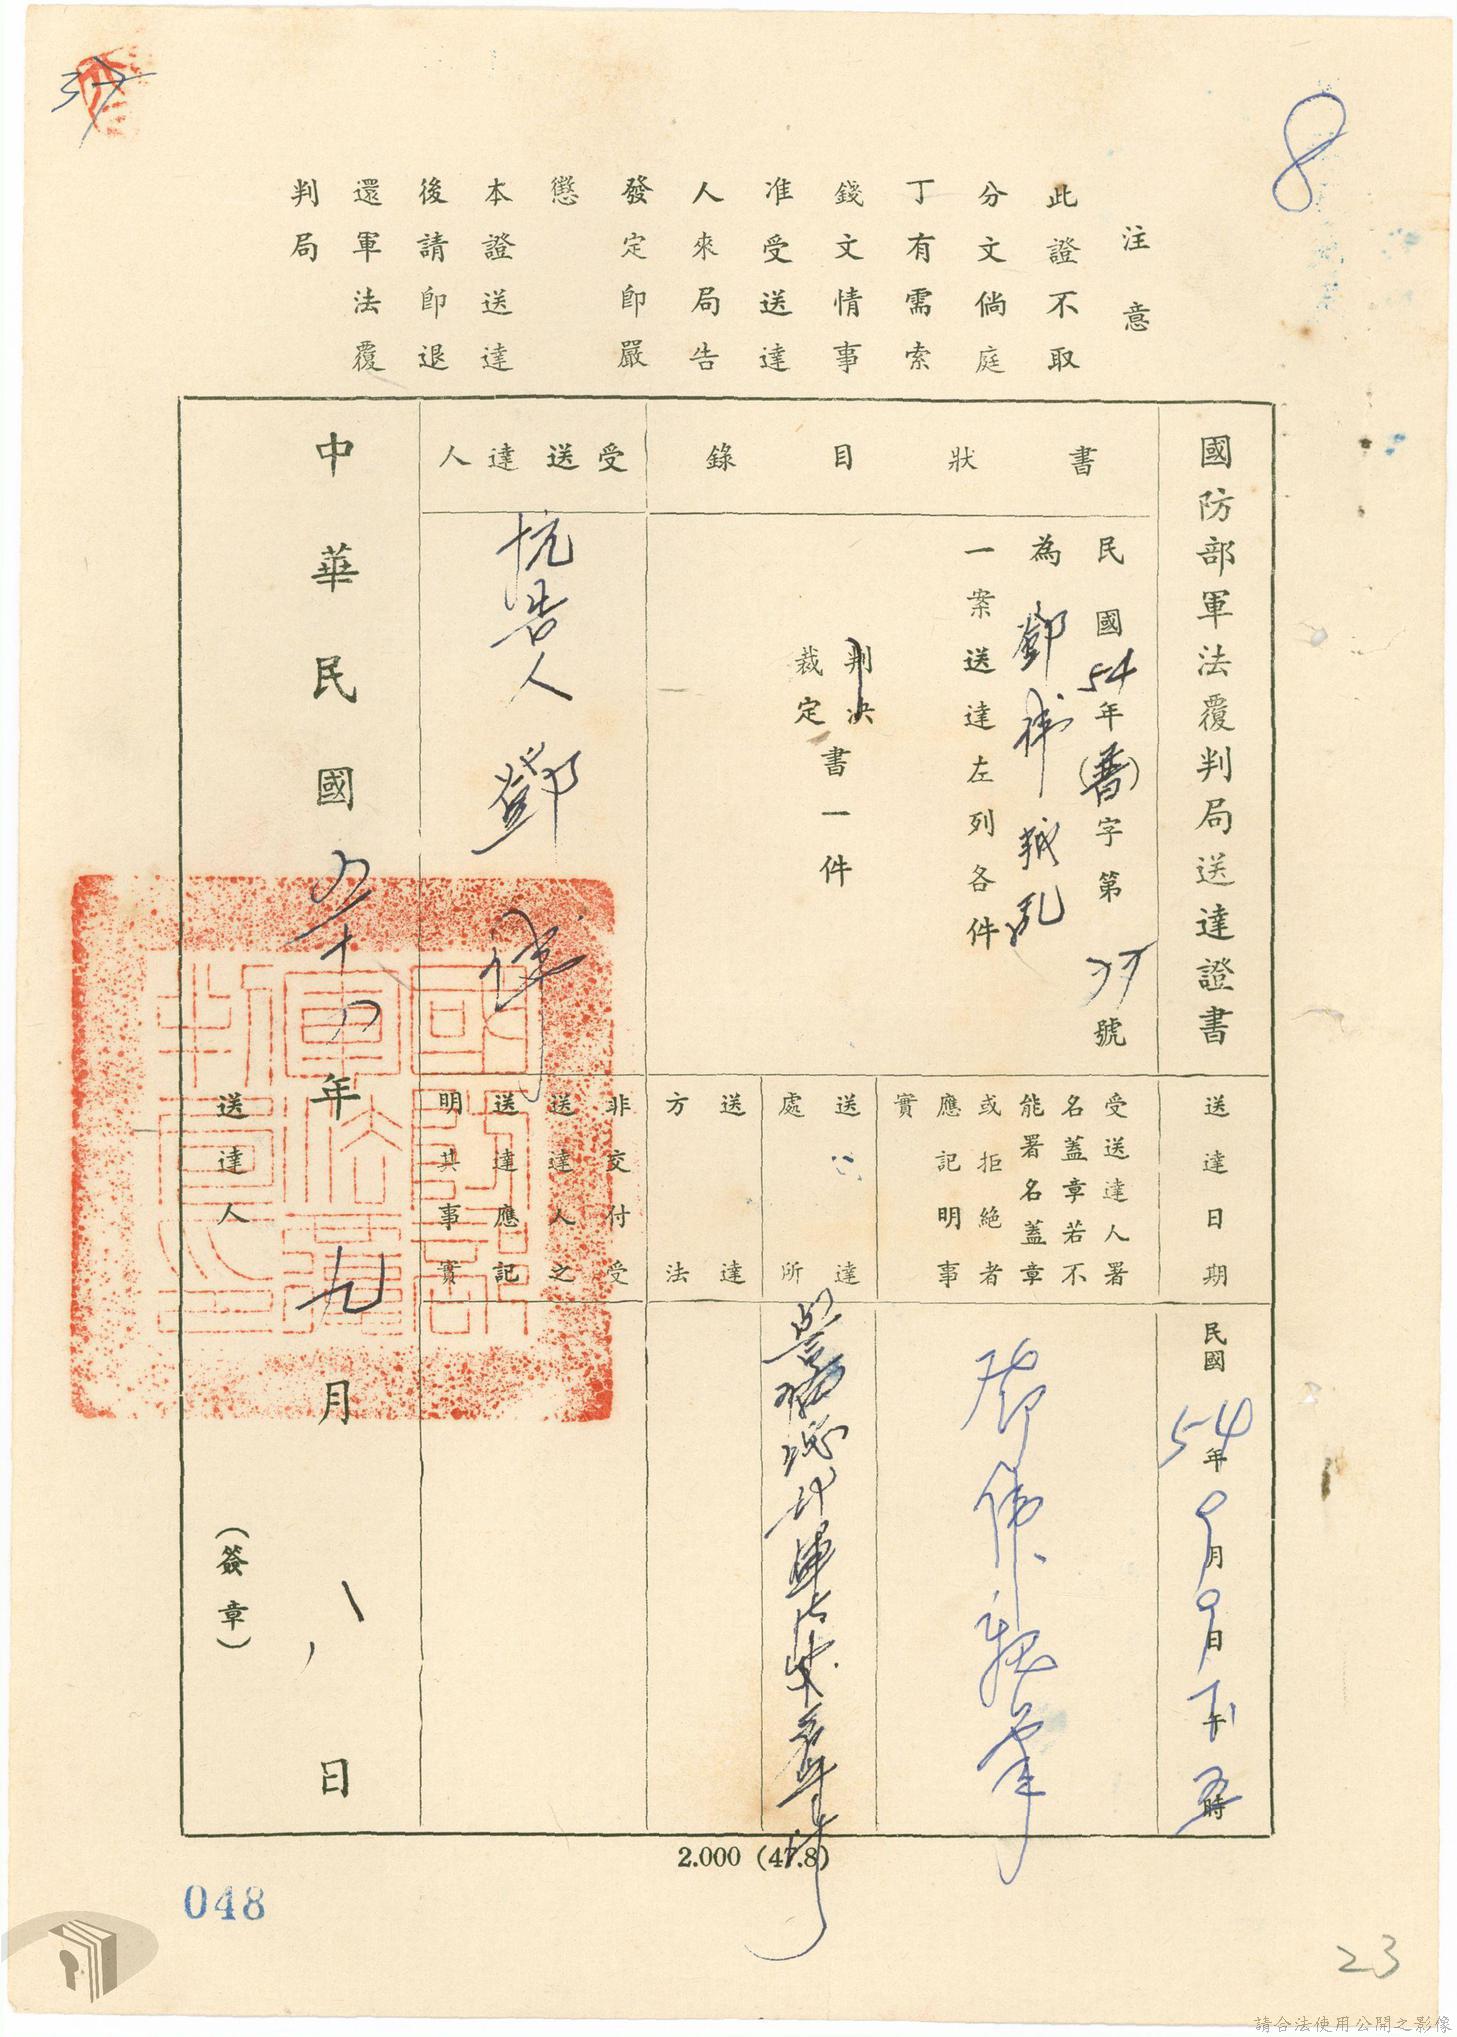 8
注意
此證不取
分文倘庭
丁有需索
錢文情事
准受送達
人來局告
發定即嚴
懲
本證送達
後請即退
還軍法覆
判局
國防部軍法覆判局送達證書
書狀目錄
民國54年(普)字第 號
為鄧 叛亂
一案送達左列各件
判決
裁定
書一件
受送達人
抗告人 鄧
送達日期
民國54年9月9日下午 時
受送達人署
名蓋章若不
能署名蓋章
或拒絕者
應記明事
實
送達
處所
送達
方法
非交付受
送達人之
送達應記
明其事實
中華民國五十 年九月 日
送達人
(簽章)
2.000 (47.8)
048
23
請合法使用公開之影像